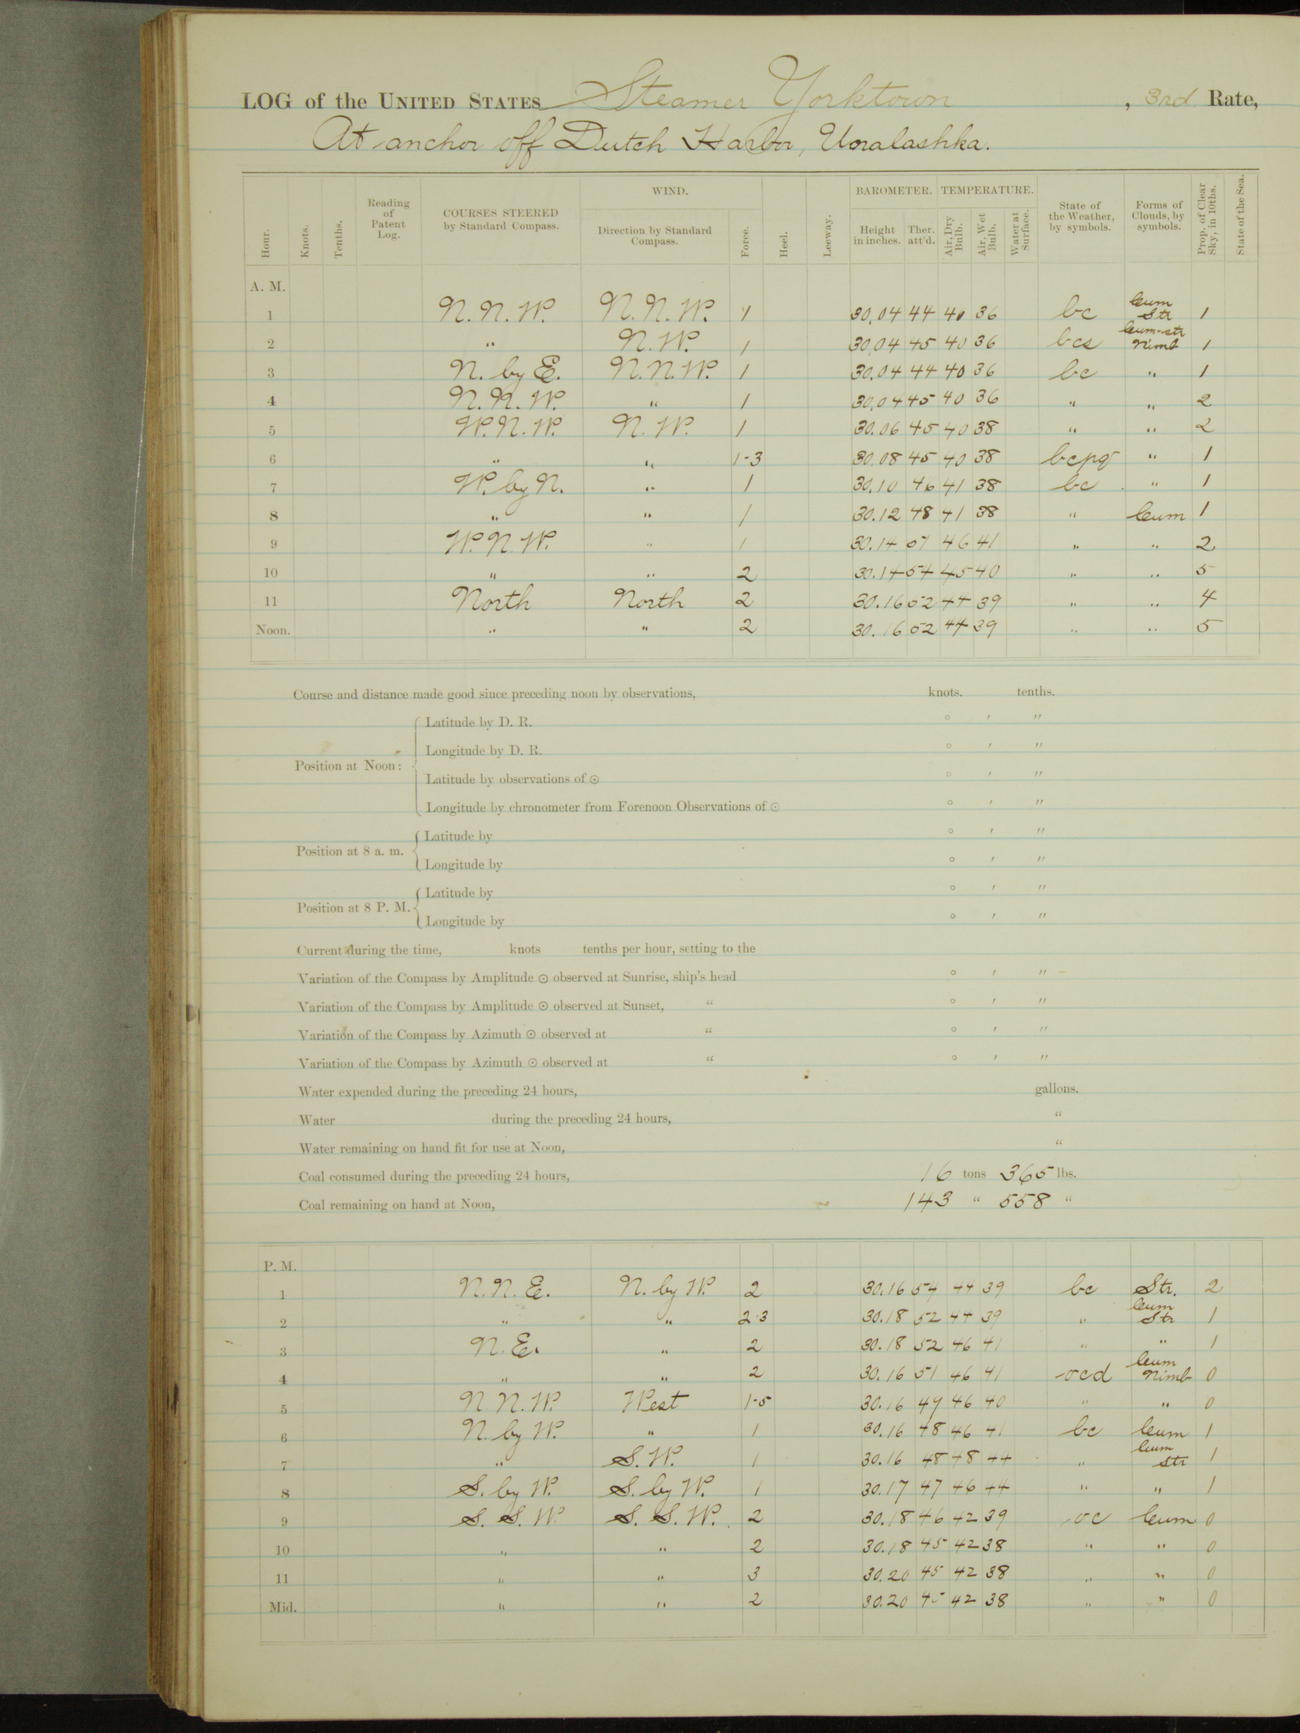 LOG of the UNITED STATES Steamer Yorktown, 3rd Rate,
At anchor off Dutch Harbor, Unalashka.
Hour. Knots. Tenths. Reading of Patent Log. COURSES STEERED by Standard Compass. WIND. Direction by Standard Compass. Force. Heel. Leeway. BAROMETER. Height in inches. Ther. att'd. TEMPERATURE. Air, Dry Bulb. Air, Wet Bulb. Water at Surface. State of the Weather, by symbols. Forms of Clouds, by symbols. Prop. of Clear Sky, in 10ths. State of the Sea.
A. M.
1 N.N.W. N.N.W. 1 30.04 44 40 36 bc Cum Str 1
2 " N.W. 1 30.04 45 40 36 bcs Cum-str Nimb 1
3 N. by E. N.N.W. 1 30.04 44 40 36 bc " 1
4 N.N.W. " 1 30.04 45 40 36 " " 2
5 W.N.W. N.W. 1 30.06 45 40 38 " " 2
6 " " 1-3 30.08 45 40 38 bcpq " 1
7 W. by N. " 1 30.10 46 41 38 bc " 1
8 " " 1 30.12 48 41 38 " Cum 1
9 W.N.W. " 1 30.14 46 41 " " 2
10 " " 2 30.14 54 45 40 " " 5
11 North North 2 30.16 52 44 39 " " 4
Noon. " " 2 30.16 52 44 39 " " 5
Course and distance made good since preceding noon by observations, knots. tenths.
Position at Noon: Latitude by D. R. ° ′ ″
Longitude by D. R. ° ′ ″
Latitude by observations of ⊙ ° ′ ″
Longitude by chronometer from Forenoon Observations of ⊙ ° ′ ″
Position at 8 a. m. Latitude by ° ′ ″
Longitude by ° ′ ″
Position at 8 P. M. Latitude by ° ′ ″
Longitude by ° ′ ″
Current during the time, knots tenths per hour, setting to the
Variation of the Compass by Amplitude ⊙ observed at Sunrise, ship's head ° ′ ″
Variation of the Compass by Amplitude ⊙ observed at Sunset, " ° ′ ″
Variation of the Compass by Azimuth ⊙ observed at " ° ′ ″
Variation of the Compass by Azimuth ⊙ observed at " ° ′ ″
Water expended during the preceding 24 hours, gallons.
Water during the preceding 24 hours, "
Water remaining on hand fit for use at Noon, "
Coal consumed during the preceding 24 hours, 16 tons 365 lbs.
Coal remaining on hand at Noon, 143 " 558 "
P. M.
1 N.N.E. N. by W. 2 30.16 54 44 39 bc Str. 2
2 " " 2-3 30.18 52 44 39 " Cum Str 1
3 N.E. " 2 30.18 52 46 41 " " 1
4 " " 2 30.16 51 46 41 ocd Cum Nimb 0
5 N.N.W. West 1-5 30.16 49 46 40 " " 0
6 N. by W. " 1 30.16 48 46 41 bc Cum 1
7 " S.W. 1 30.16 48 48 44 " Cum Str 1
8 S. by W. S. by W. 1 30.17 47 46 44 " " 1
9 S.S.W. S.S.W. 2 30.18 46 42 39 oc Cum 0
10 " " 2 30.18 45 42 38 " " 0
11 " " 3 30.20 45 42 38 " " 0
Mid. " " 2 30.20 45 42 38 " " 0